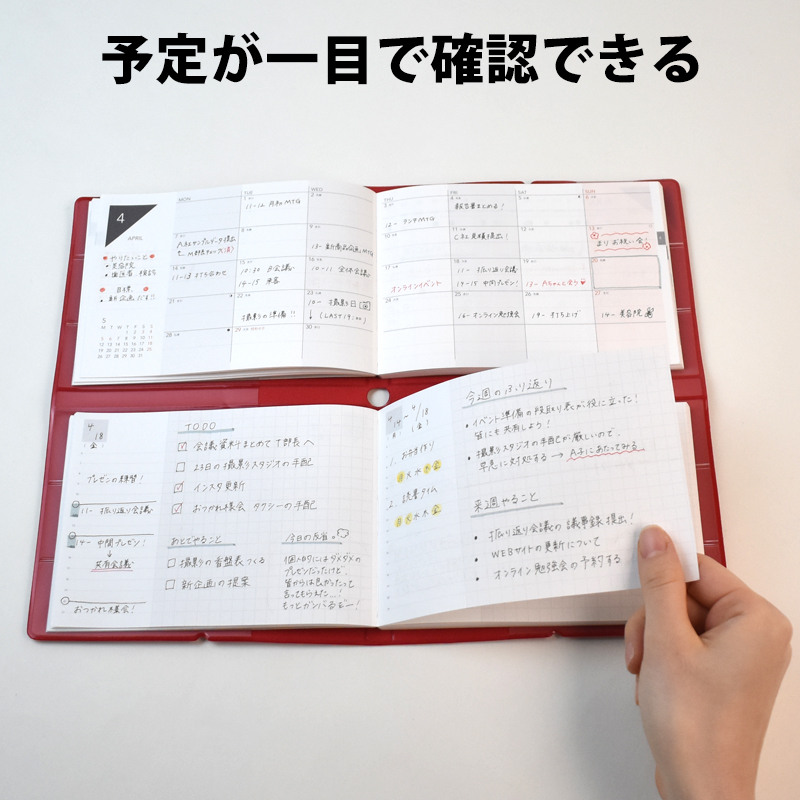 予定が一目で確認できる
4
APRIL
やりたいこと
美容院
歯医者 検診
目標
新企画だす!!
5
M T W T F S S
MON
TUE
WED
THU
FRI
SAT
SUN
11-12 月初MTG
12- ランチMTG
報告書まとめる!
13- 新商品企画MTG
C社見積提出!
お祝い会!
11-13 打ち合わせ
10:30 日会議
14-15 来客
10-11 全体会議
オンラインイベント
11- 振り返り会議
14-15 中間プレゼン!
13- Aちゃんと会う
撮影の準備!!
10- 撮影日
(LAST 19:00)
16- オンライン勉強会
19- 打ち上げ
14- 美容院
4
18
(金)
プレゼンの練習!
11- 振り返り会議
14- 中間プレゼン!
↓
共有会議
おつかれ様会!
TODO
会議資料まとめて T部長へ
23日の撮影スタジオの手配
インスタ更新
おつかれ様会 タクシーの手配
あとでやること
撮影の香盤表つくる
新企画の提案
今日の反省。
個人的にはダメダメの
プレゼンだったけど、
皆からは良かったって
言ってもらえた…!
もっとガンバるぞー!
4/14-4/18
(月) (金)
1. お弁当作り
月火水木金
2. 読書タイム
月火水木金
今週のふり返り
・イベント準備の段取り表が役に立った!
皆にも共有しよう!
・撮影スタジオの手配が厳しいので、
早急に対処する → A子にあたってみる
来週やること
・振り返り会議の議事録提出!
・WEBサイトの更新について
・オンライン勉強会の予約する